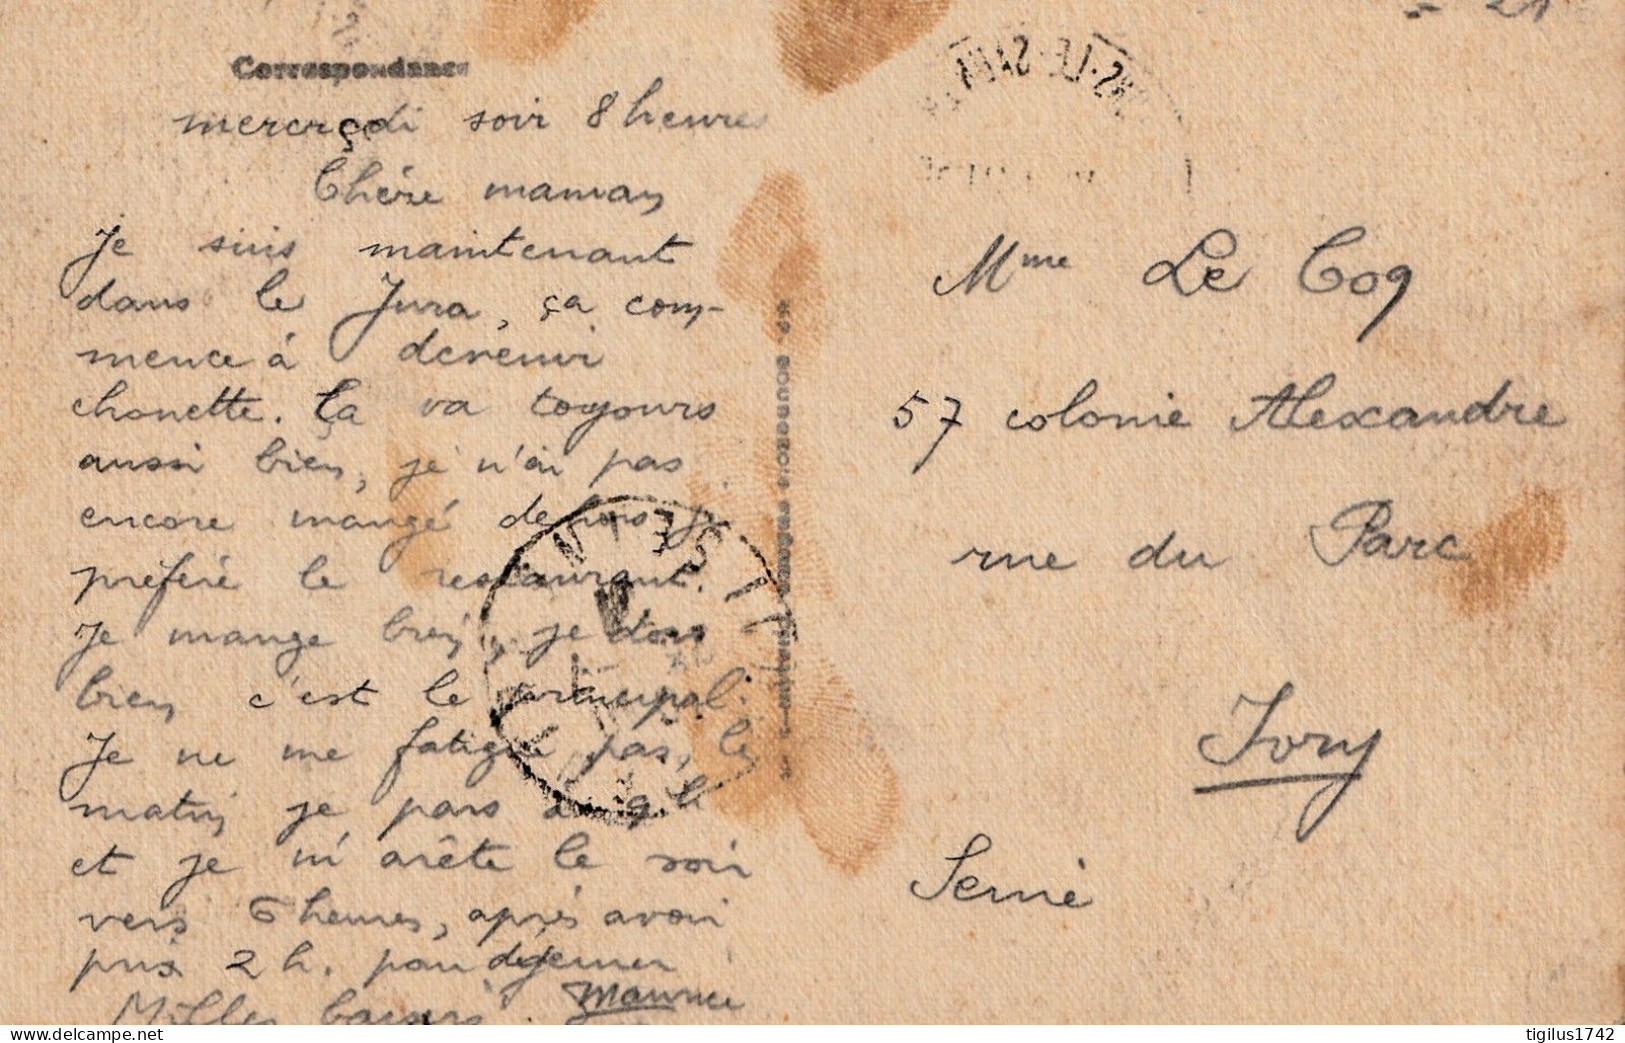 Correspondance
mercredi soir 8 heures
Chère maman
Je suis maintenant
dans le Jura, ça com-
mence à devenir
chouette. Ça va toujours
aussi bien, je n'ai pas
encore mangé dehors je
préfère le restaurant.
Je mange bien, je dors
bien c'est le principal.
Je ne me fatigue pas, le
matin je pars à 9 h
et je m'arête le soir
vers 6 heures, après avoir
pris 2 h. pour déjeuner
Milles baisers. Maurice
Mme Le Coq
57 colonie Alexandre
rue du Parc
Ivry
Seine
delcampe.net
tigilus1742